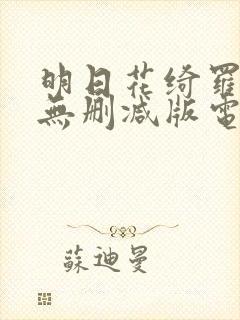 明日花绮羅
無删减版電
蘇迪曼